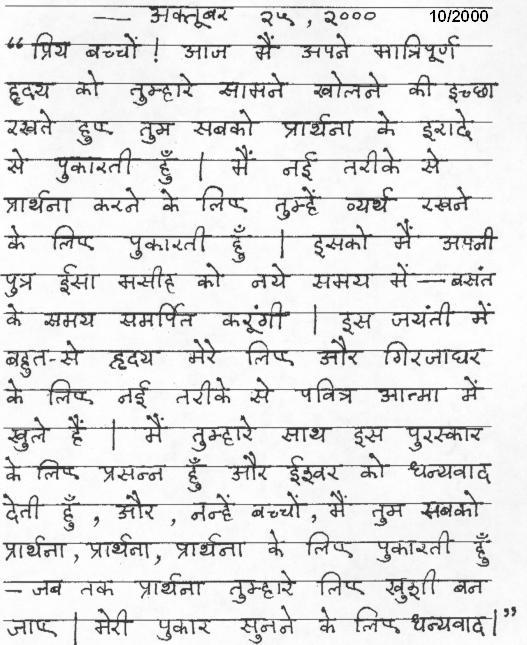 — अक्तूबर २५, २००० 10/2000
“प्रिय बच्चों! आज मैं अपने मात्रिपूर्ण
हृदय को तुम्हारे सामने खोलने की इच्छा
रखते हुए तुम सबको प्रार्थना के इरादे
से पुकारती हूँ | मैं नई तरीके से
प्रार्थना करने के लिए तुम्हें व्यर्थ रखने
के लिए पुकारती हूँ | इसको मैं अपनी
पुत्र ईसा मसीह को नये समय में — बसंत
के समय समर्पित करूंगी | इस जयंती में
बहुत-से हृदय मेरे लिए और गिरजाघर
के लिए नई तरीके से पवित्र आत्मा में
खुले हैं | मैं तुम्हारे साथ इस पुरस्कार
के लिए प्रसन्न हूँ और ईश्वर को धन्यवाद
देती हूँ, और, नन्हें बच्चों, मैं तुम सबको
प्रार्थना, प्रार्थना, प्रार्थना के लिए पुकारती हूँ
– जब तक प्रार्थना तुम्हारे लिए खुशी बन
जाए | मेरी पुकार सुनने के लिए धन्यवाद|”